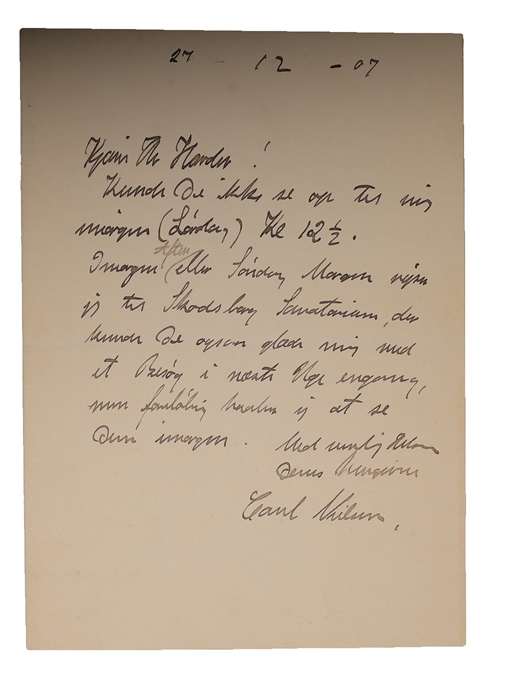 27 - 12 - 07
Kjære Hr Harder!
Kunde De ikke se op til mig
imorgen (Lördag) Kl 12½.
Aften
Imorgen eller Söndag Morgen rejser
jeg til Skodsborg Sanatorium, der
kunde De ogsaa glæde mig med
et Besög i næste Uge engang,
men foreløbig haaber jeg at se
Dem imorgen. Med venlig Hilsen
Deres hengivne
Carl Nielsen.